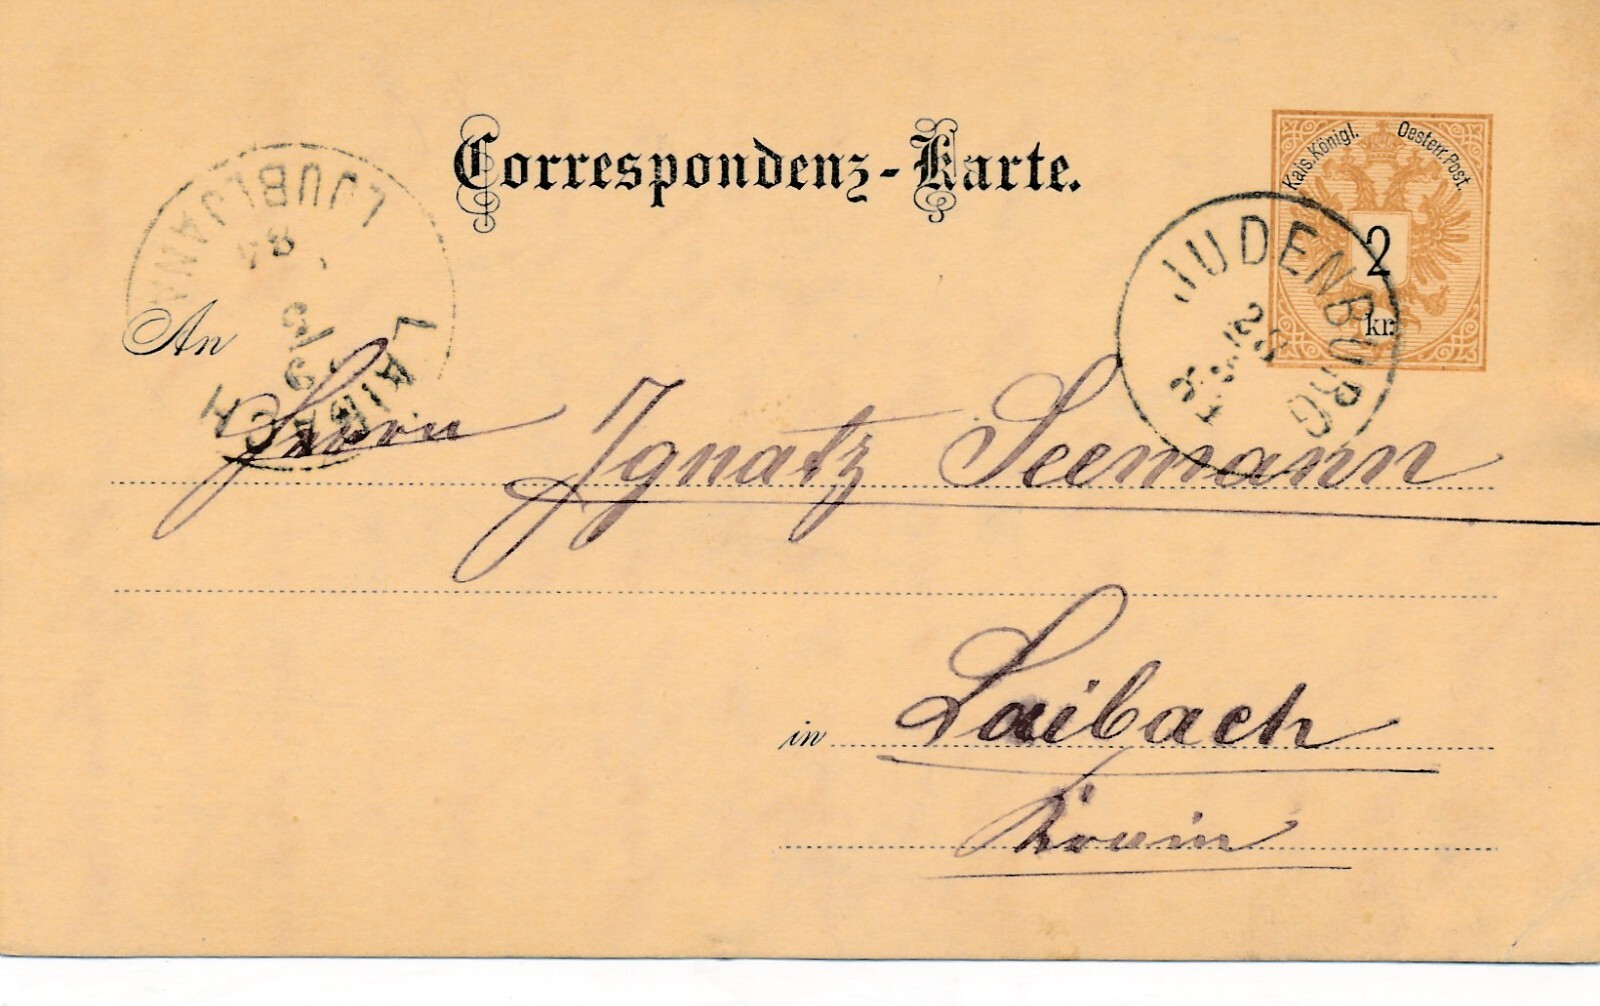 Correspondenz-Karte.
Kais. Königl. Oesterr. Post.
2
kr.
JUDENBURG
LJUBLJANA
84
LAIBACH
An
Herrn Ignatz Seemann
in Laibach
Krain